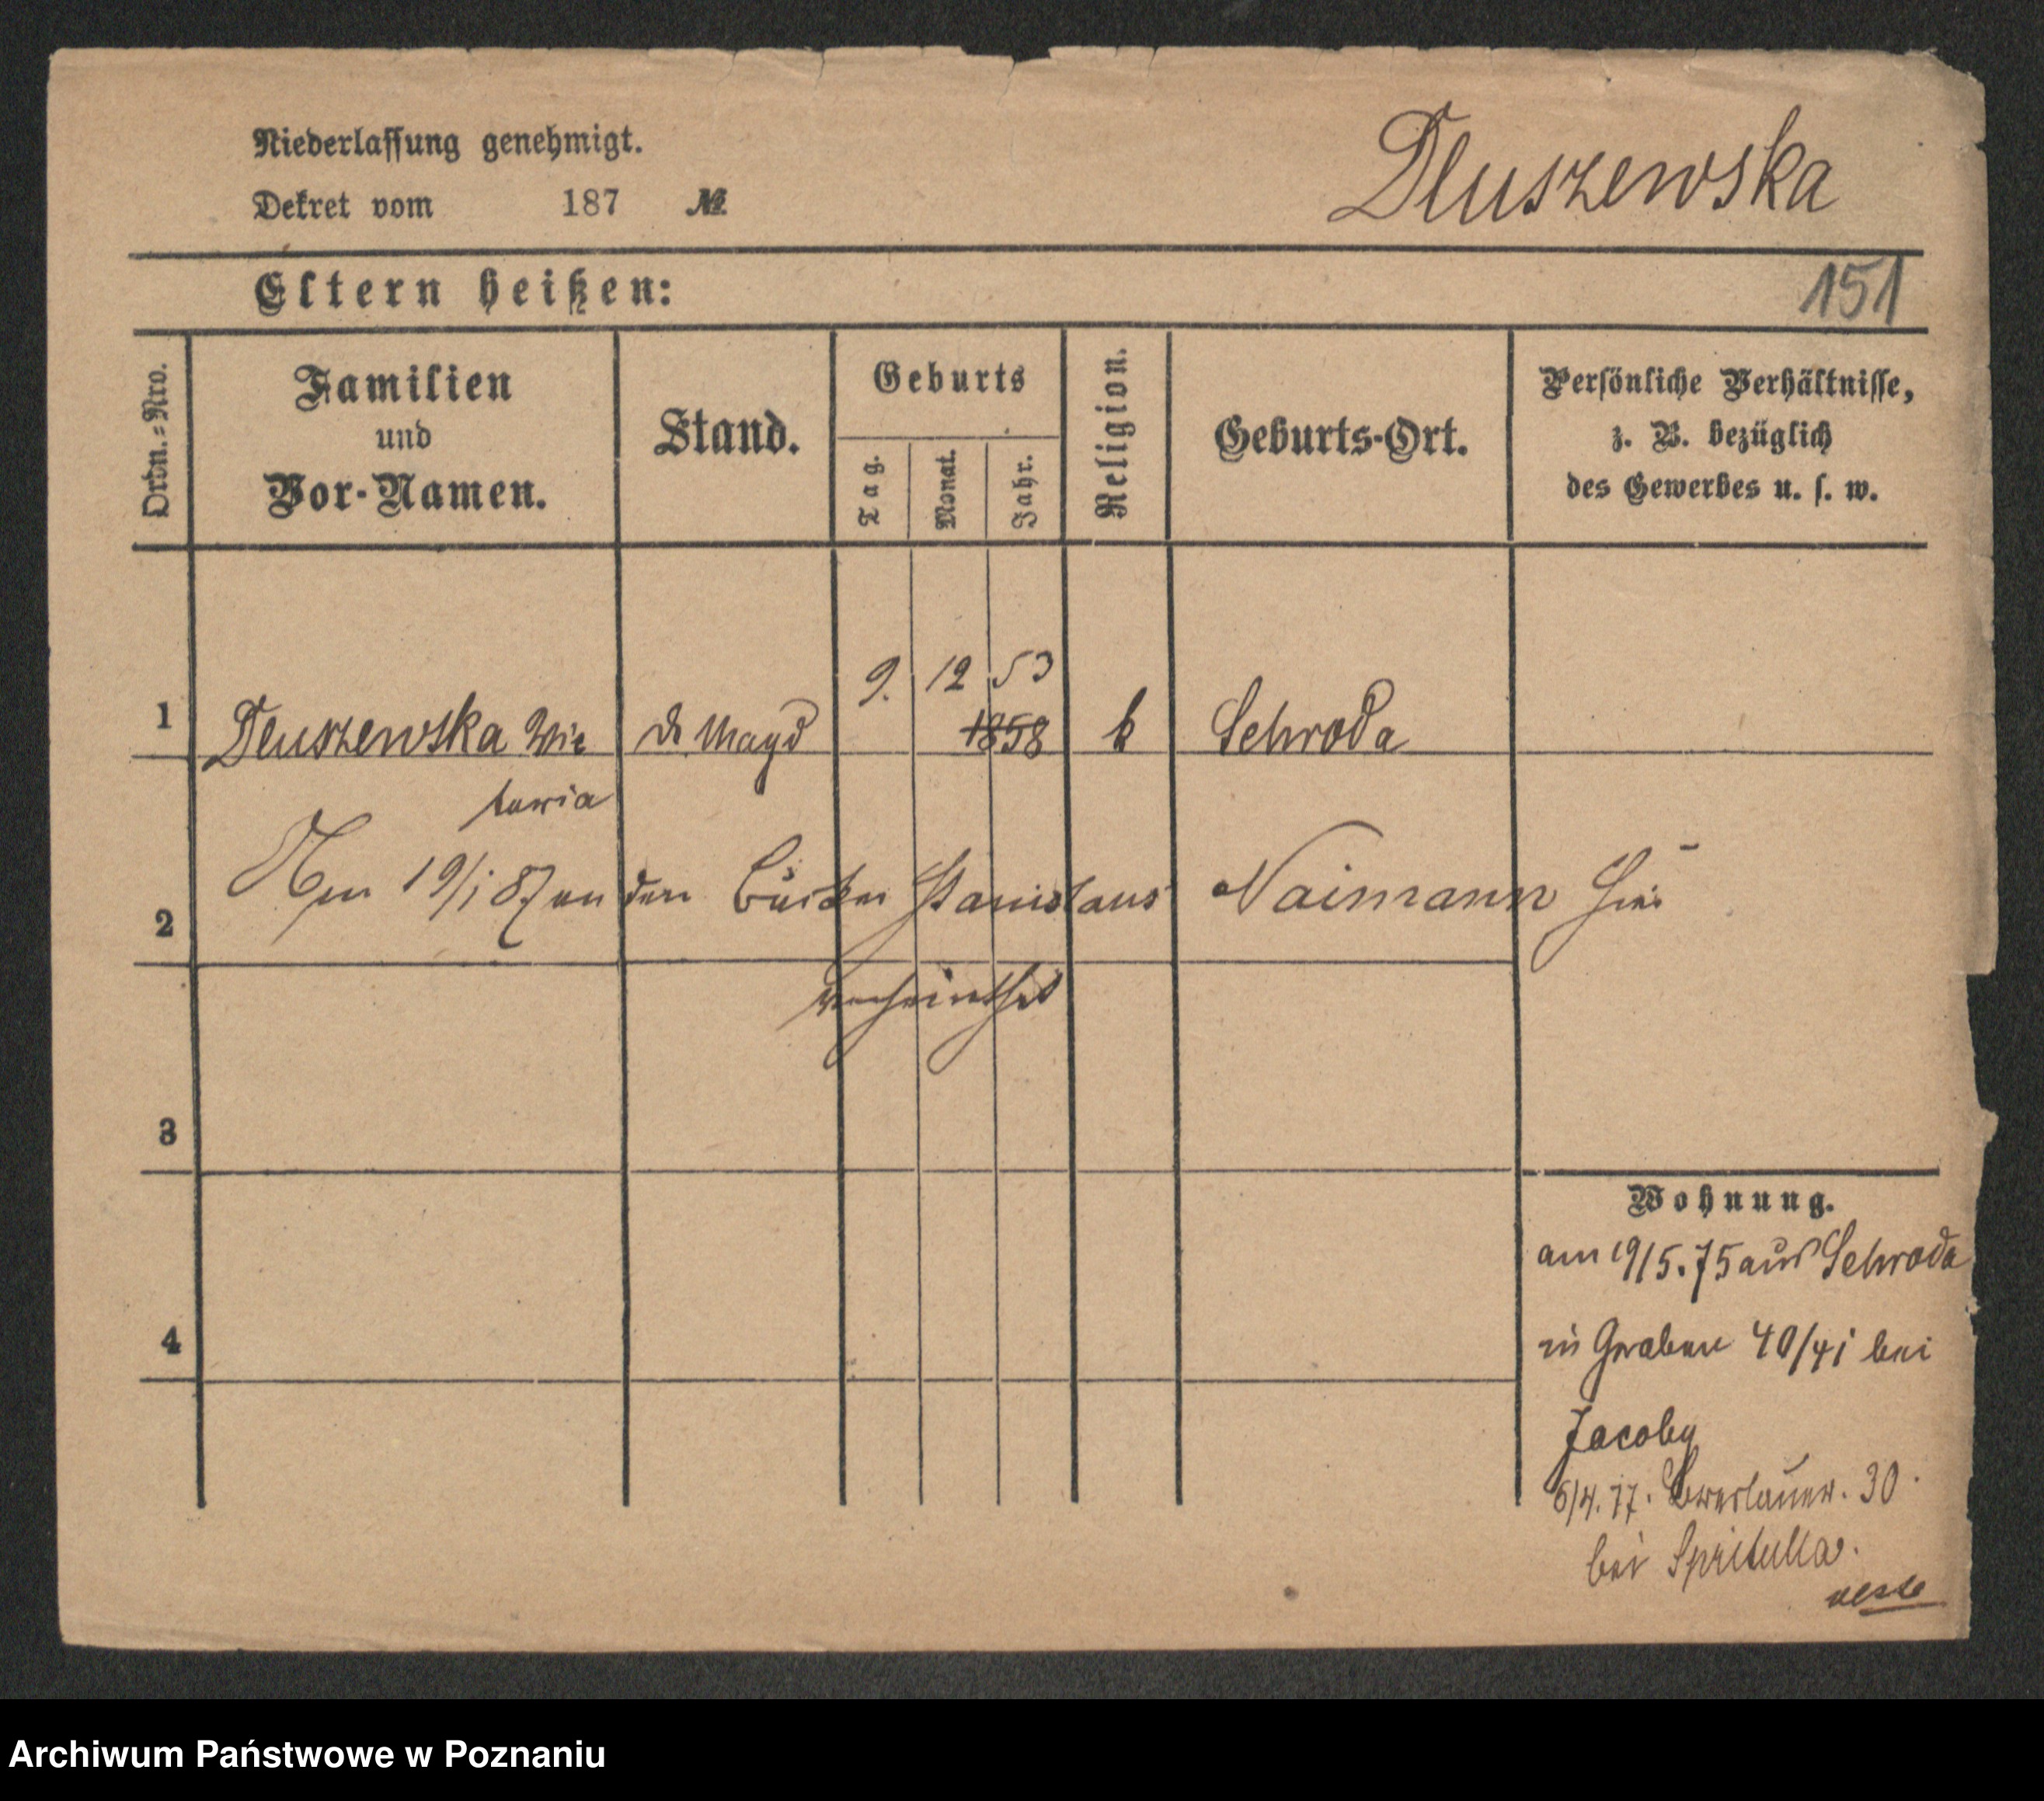 Niederlassung genehmigt.
Dekret vom 187 №
Dluszewska
Eltern heißen:
151
Ordn.=Nro.
Familien
und
Vor-Namen.
Stand.
Geburts
Tag.
Monat.
Jahr.
Religion.
Geburts-Ort.
Persönliche Verhältnisse,
z. B. bezüglich
des Gewerbes u. s. w.
9. 12 53
1 Dluszewska Vic d. Magd 1858 k Schroda
toria
2 19/1 87 an den Bäcker Stanislaus Naimann hier
verheirathet
3
4
Wohnung.
am 19/5.75 aus Schroda
in Graben 40/41 bei
Jacoby
5/4.77. Breslauer. 30
bei Spritulla.